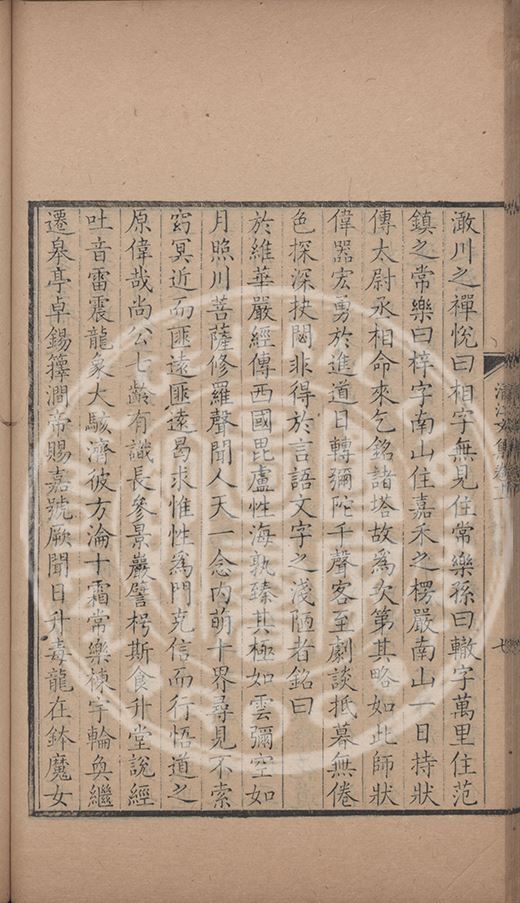 澉川之禪悅曰相字無見住常樂孫曰轍字萬里住范
鎮之常樂曰梓字南山住嘉禾之楞嚴南山一日持狀
傳太尉丞相命來乞銘諸塔故為次第其略如此師狀
偉器宏勇於進道日轉彌陀千聲客至劇談抵暮無倦
色探深抉閟非得於言語文字之淺陋者銘曰
於維華嚴經傳西國毘盧性海孰臻其極如雲彌空如
月照川菩薩修羅聲聞人天一念內萌十界尋見不索
窈冥近而匪遠匪遠曷求惟性為門克信而行悟道之
原偉哉尚公七齡有識長參景巖譬枵斯食升堂說經
吐音雷震龍象大駭濟彼方淪十霜常樂棟宇輪奐繼
遷皋亭卓錫籜澗帝賜嘉號厥聞日升毒龍在鉢魔女
清江文集卷十
七